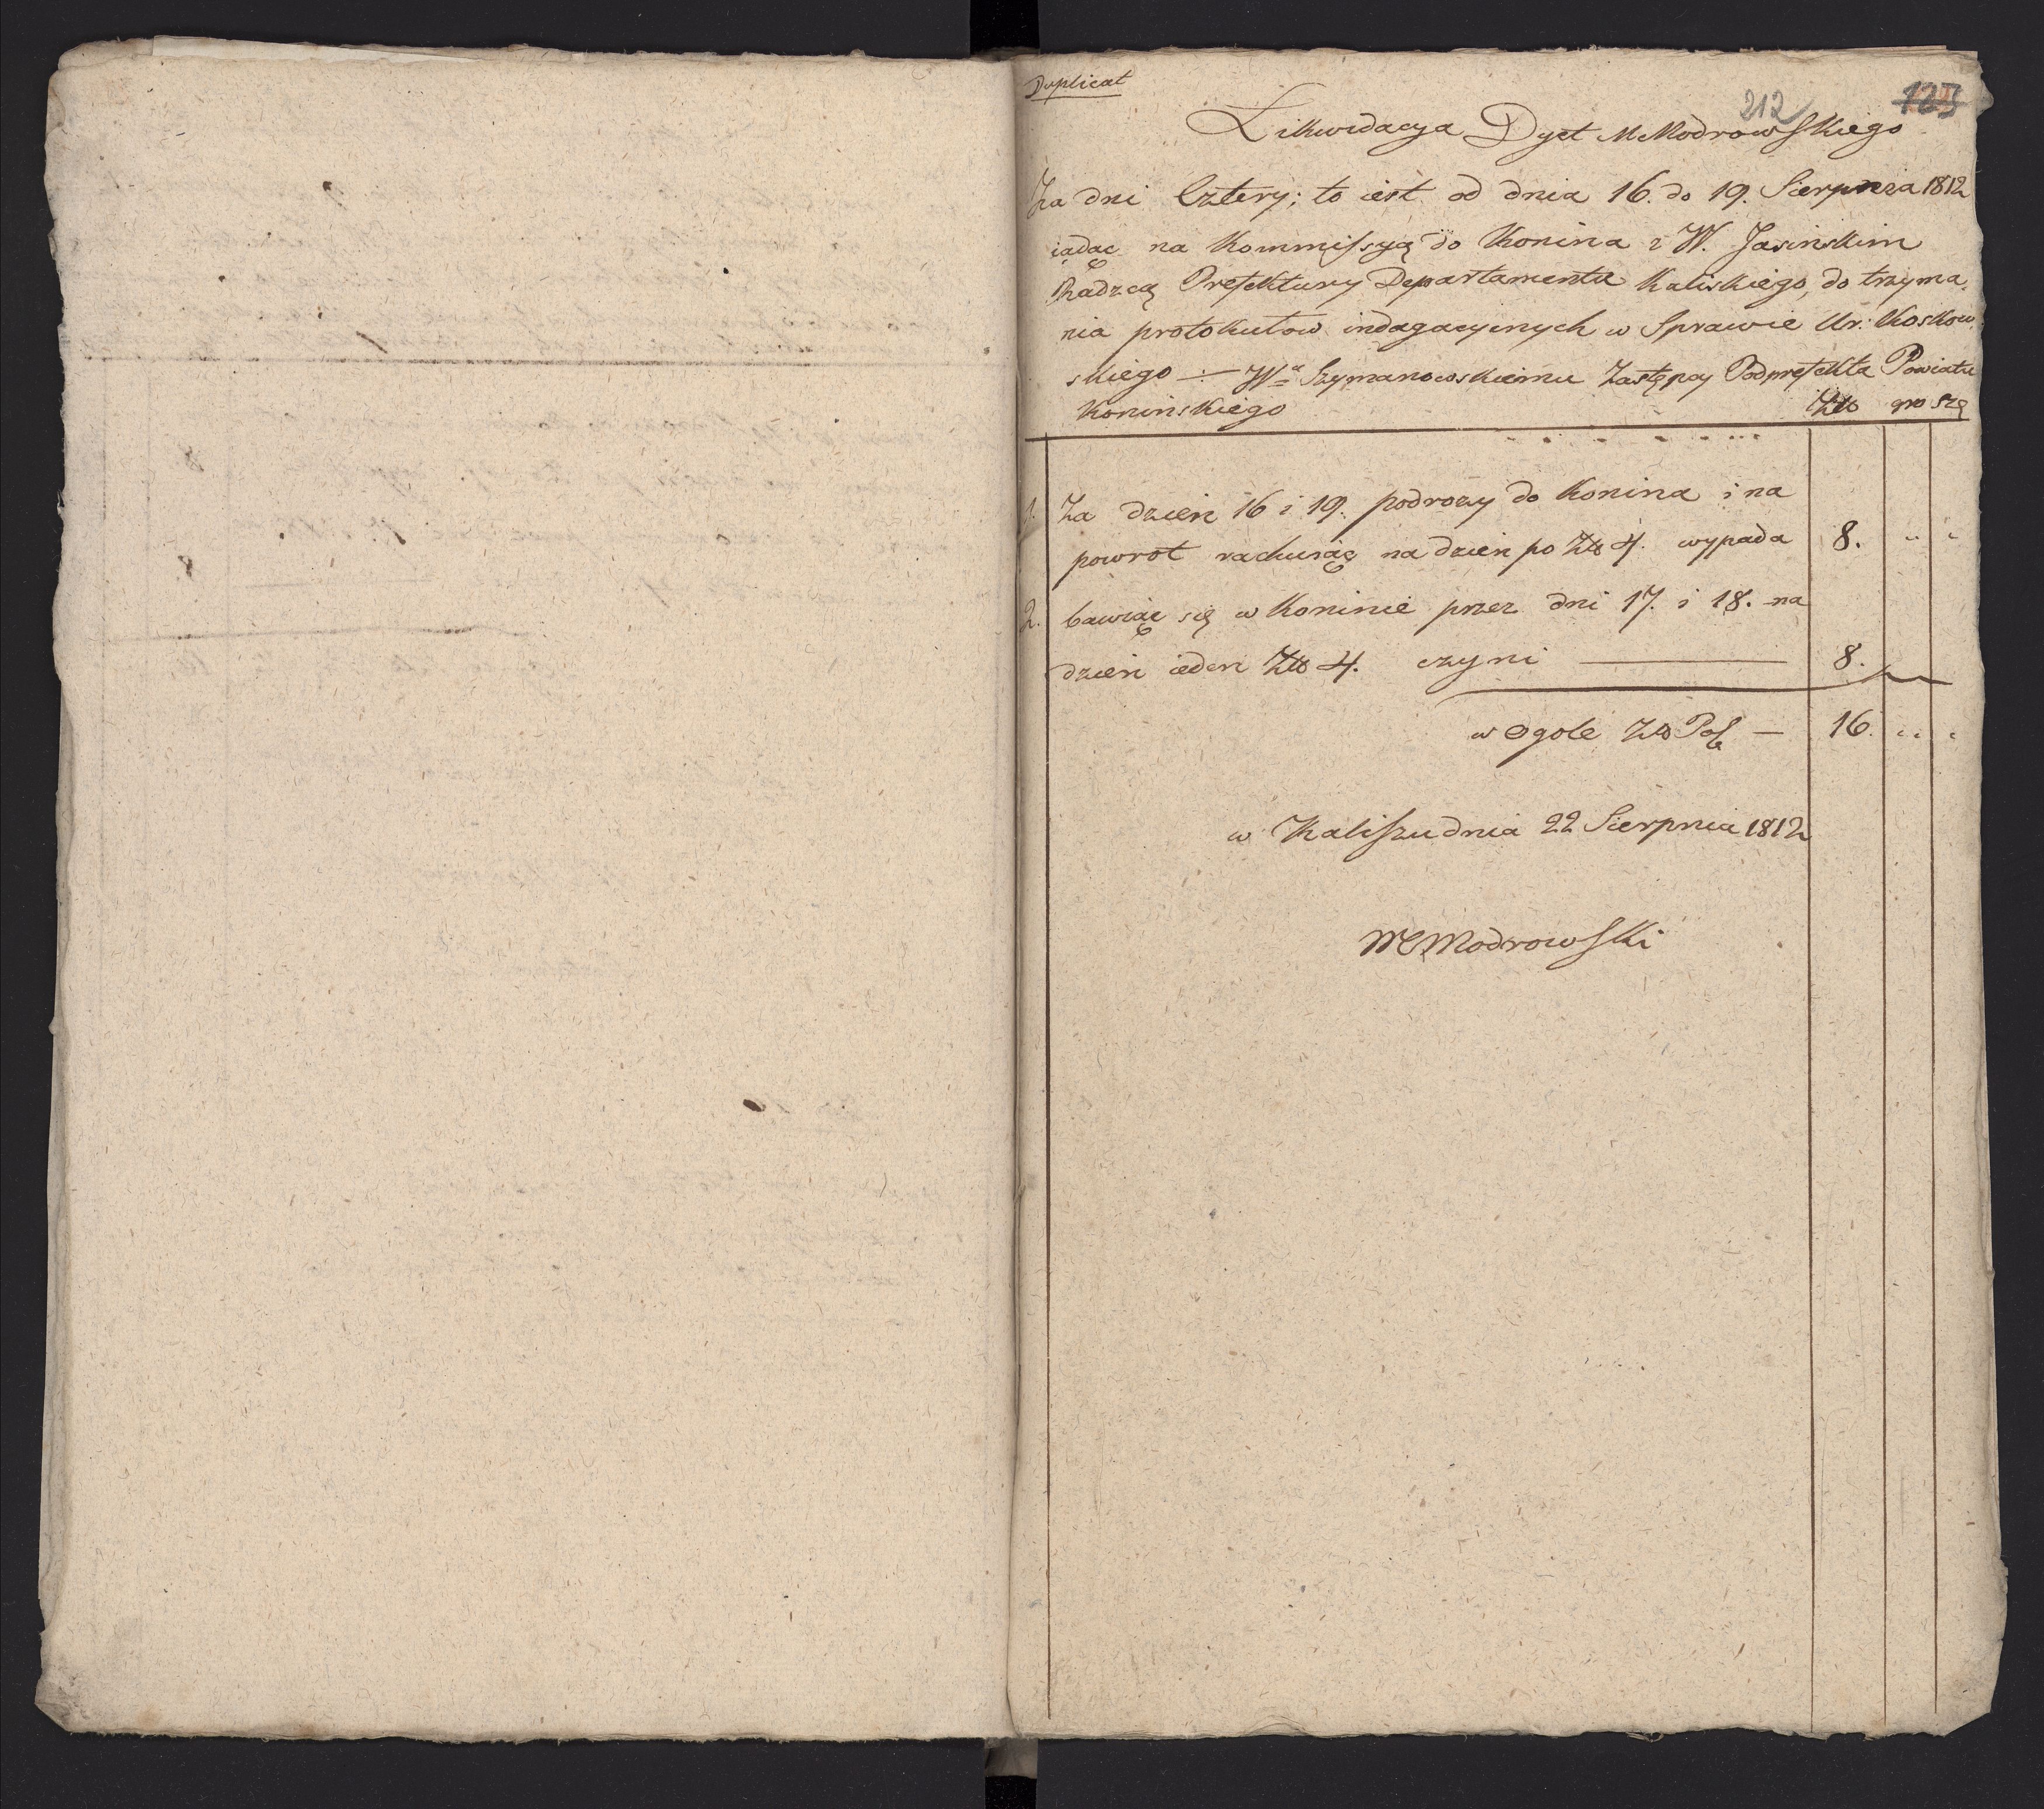 Duplicat
212
123
Likwidacya Dyet M Modrowskiego
Za dni Cztery; to iest od dnia 16. do 19. Sierpnia 1812
iadąc na Kommissyą do Konina z W. Jasinskim
Radzcą Prefektury Departamentu Kaliskiego, do trzyma-
nia protokułow indagacyinych w Sprawie Ur: Koskow
skiego — Wu Szymanowskiemu Zastępcy Podprefekta Powiatu
Konińskiego
Złło groszę
1. Za dzien 16 i 19. podrozy do Konina i na
powrot rachuiąc na dzien po Złł 4. wypada 8. " "
2. bawiąc się w Koninie przez dni 17. i 18. na
dzien ieden Złł 4. czyni — 8.
w ogole Złł Pol — 16. " "
w Kaliszu dnia 22 Sierpnia 1812
Modrowski